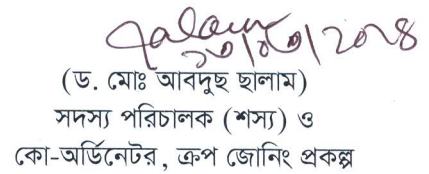 (ড. মোঃ আবদুছ ছালাম)
সদস্য পরিচালক (শস্য) ও
কো-অর্ডিনেটর, ক্রপ জোনিং প্রকল্প